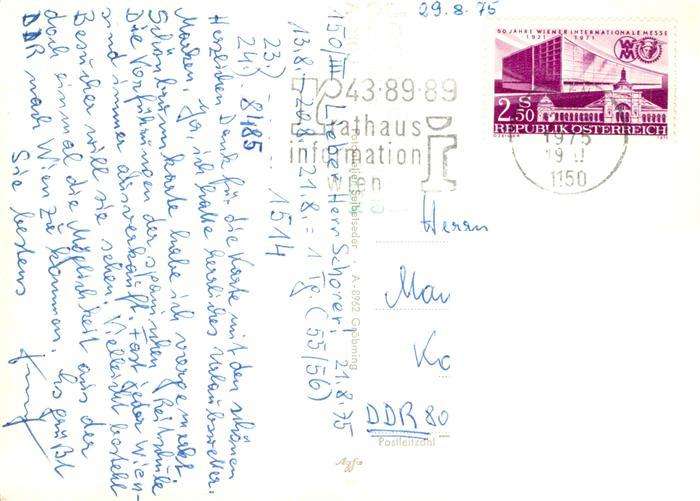 29.8.75
50 JAHRE WIENER INTERNATIONALE MESSE
1921 1971
2.50 S
REPUBLIK ÖSTERREICH
43·89·89
rathaus
information
wien
1975
1150
150/III Lieber Herr Schorer! 21.8.75
13.8.-20.8. 21.8. = 1 Tg. (55/56)
23) - . - . - 1514
24. 8485
Herzlichen Dank für die Karte mit den schönen
Marken. Ja, ich hatte herrliches Urlaubswetter.
Schönbrunn karte habe ich vorgemerkt.
Die Vorführungen der spanischen Reitschule
sind immer ausverkauft. Fast jeder Wien-
Besucher will sie sehen. Vielleicht besteht
doch einmal die Möglichkeit aus der
DDR nach Wien zu kommen. Es grüßt
Sie bestens
A-8962 Gröbming
Herrn
Mar
Ko
DDR 80
Postleitzahl